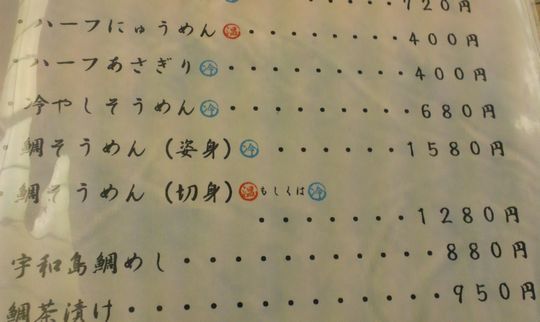 720円
・ハーフにゅうめん 温 ・・・・・・・・ 400円
・ハーフあさぎり 冷 ・・・・・・・・ 400円
・冷やしそうめん 冷 ・・・・・・・・ 680円
・鯛そうめん (姿身) 冷 ・・・・・・・ 1580円
・鯛そうめん (切身) 温 もしくは 冷
・・・・・・・ 1280円
宇和島鯛めし ・・・・・・・・・・・ 880円
鯛茶漬け ・・・・・・・・・・・・・ 950円